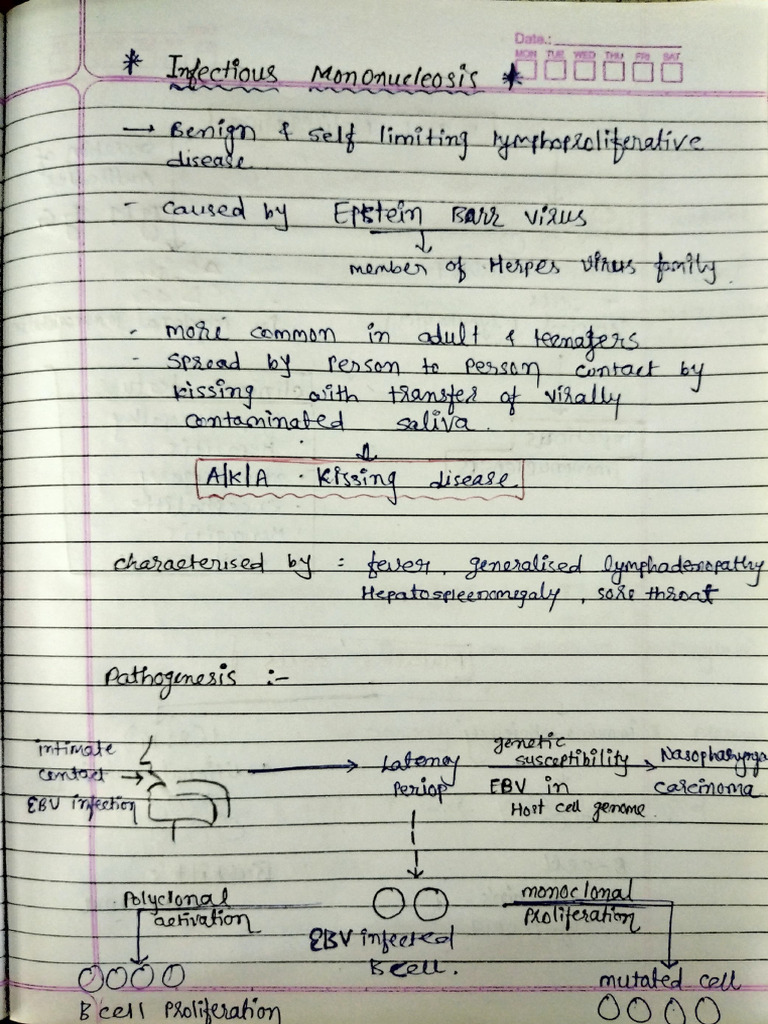 Date.:
MON TUE WED THU FRI SAT
* Infectious Mononucleosis *
→ Benign & self limiting lymphoproliferative
disease
- caused by Epstein Barr virus
↓
member of Herpes virus family.
- more common in adult & teenagers
- spread by person to person contact by
kissing with transfer of virally
contaminated saliva.
↓
A/K/A . Kissing disease.
characterised by : fever, generalised lymphadenopathy
Hepatospleenomegaly, sore throat
Pathogenesis :-
intimate
contact →
EBV infection
→ Latency
Periop
genetic
susceptibility
EBV in
Host cell genome.
→ Nasopharynga
carcinoma
Polyclonal
activation
EBV infected
B cell.
monoclonal
Proliferation
B cell Proliferation
mutated cell